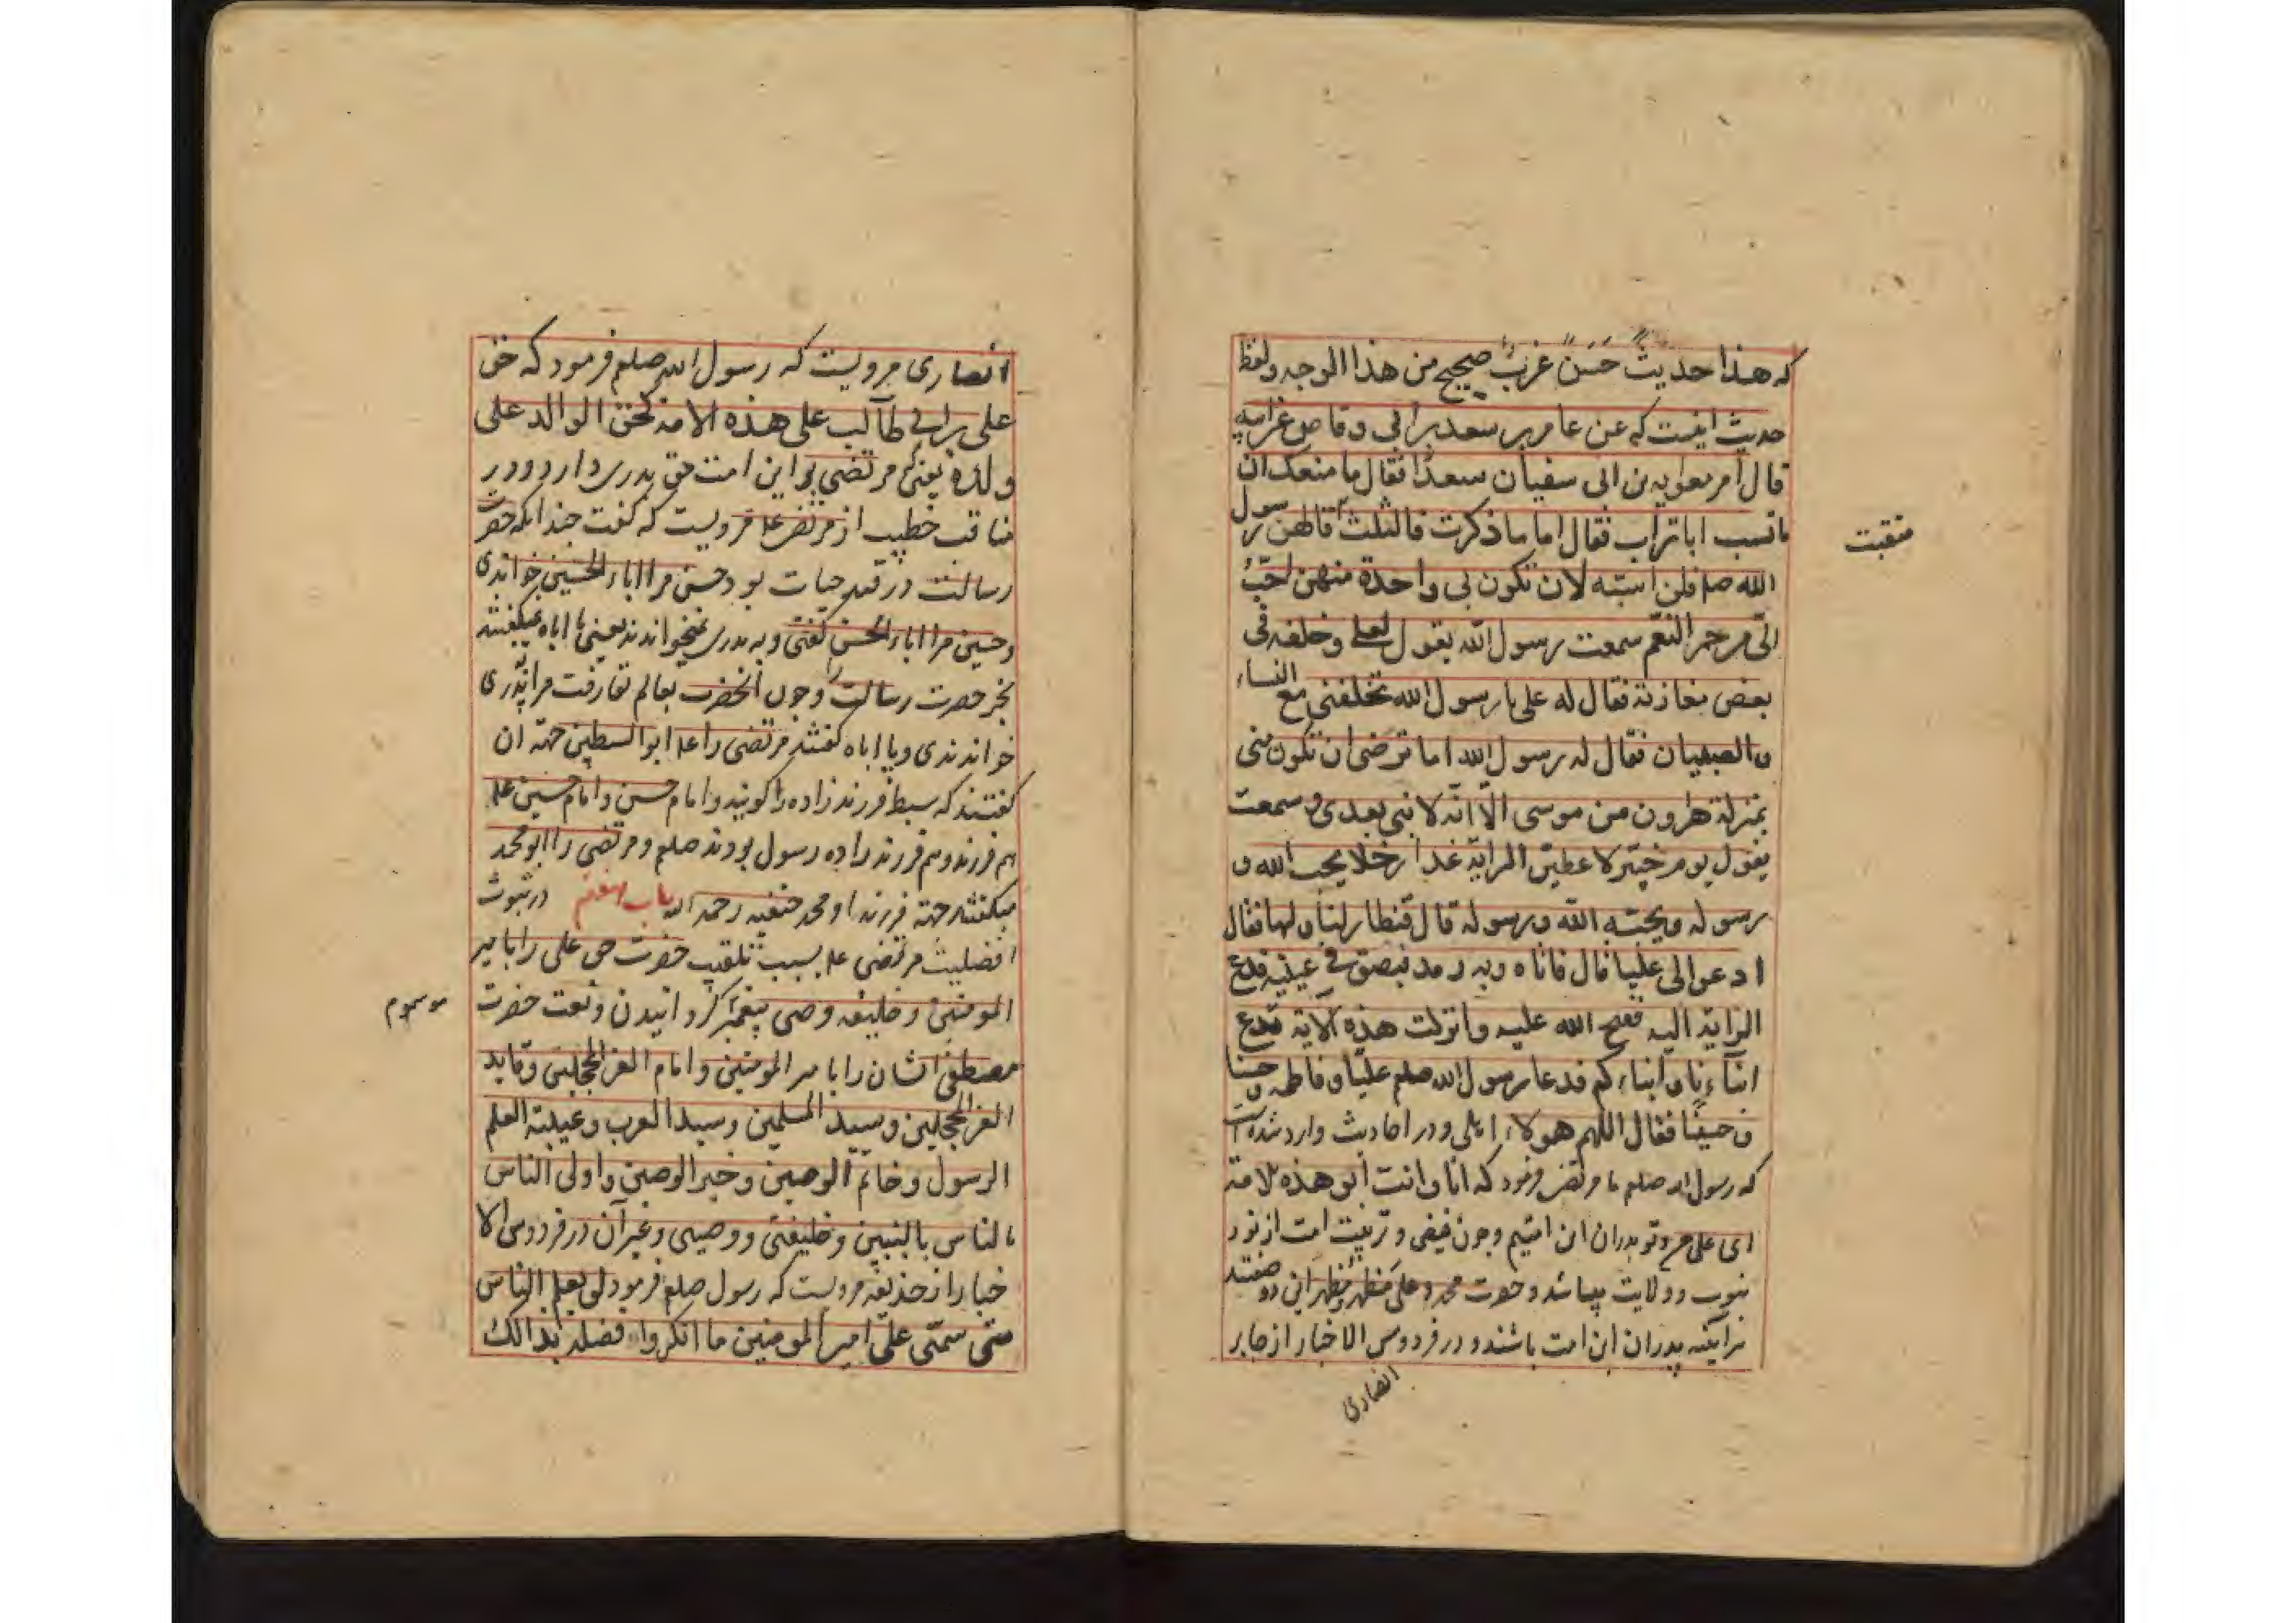 که هذا حدیث حَسَنٌ غریبٌ صحیح من هذا الوجه ولفظ
حدیث اینست که عن عامر بن سعد بن ابی وقاص عن ابیه
قال امر معویه بن ابی سفیان سعدًا فقال ما منعک ان
ما تسب اباتراب فقال اما ما ذکرت فالثلث قالهن رسول
منقبت
الله صلعم فلن اسبّه لان تکون لی واحدة منهن احبّ
الیّ من حمر النعم سمعت رسول الله یقول لعلی وخلفه فی
بعض مغازیة فقال له علی یا رسول الله تخلفنی مع النساء
والصبیان فقال له رسول الله اما ترضی ان تکون منی
بمنزلة هرون من موسی الّا انّه لا نبی بعدی وسمعت
یقول یوم خیبر لاعطینّ الرایة غدا رجلا یحب الله و
رسوله ویحبّه الله ورسوله قال فتطاولنا ولها فقال
ادعوا لی علیا قال فاتاه وبه رمد فبصق فی عینیه فدفع
الرایة الیه ففتح الله علیه وانزلت هذه الایة ندع
ابنآءنا وابناءکم فدعا رسول الله صلعم علیّا وفاطمه وحسنا
وحسینًا فقال اللهم هولاء اهلی ودر احادیث وارد شده است
که رسول الله صلعم با مرتضی فرمود که انا وانت ابو هذه الامة
ای علی من وتو پدران این امتیم وچون فیض وتربیت امت از نور
نبوت وولایت میباشد وحضرت محمد وعلی مظهر ومظهر این دو صفتند
هر آینه پدران این امت باشند ودر فردوس الاخبار از جابر
انصاری
انصاری مرویست که رسول الله صلعم فرمود که حق
علی بن ابی طالب علی هذه الامة کحق الوالد علی
ولده یعنی مرتضی بر این امت حق پدری دارد ودر
مناقب خطیب از مرتضی علی مرویست که گفت چندانکه حضرت
رسالت در قید حیات بود حسن مرا اباء الحسین خواندی
وحسین مرا اباء الحسن گفتی وبه پدری نمیخواندند یعنی یا اباه نمیگفتند
بجز حضرت رسالت را وچون آنحضرت بعالم بقا رفت مرا پدری
خواندندی ویا اباه گفتند مرتضی را علی ابوالسبطین جهة آن
گفتند که سبط فرزند زاده را گویند وامام حسن وامام حسین علی
هم فرزند وهم فرزند زاده رسول بودند صلعم ومرتضی را ابومحمد
میگفتند جهة فرزند او محمد حنفیه رحمه الله باب هفتم در ثبوت
افضلیت مرتضی علی بسبب تلقیب حضرت حق علی را بامیر
المومنین وخلیفه وصی پیغمبر گردانیدن ونعت حضرت
موسوم
مصطفی ایشان را بامیر المومنین وامام الغر المحجلین وقاید
الغر المحجلین وسید المسلمین وسید العرب وعیبة العلم
الرسول وخاتم الوصین وخیر الوصین واولی الناس
بالناس بالنبیین وخلیفتی ووصیی وغیر آن در فردوس الا
خبار از حذیفه مرویست که رسول صلعم فرمود لو یعلم الناس
متی سمّی علیّ امیر المومنین ما انکروا فضله بذالک